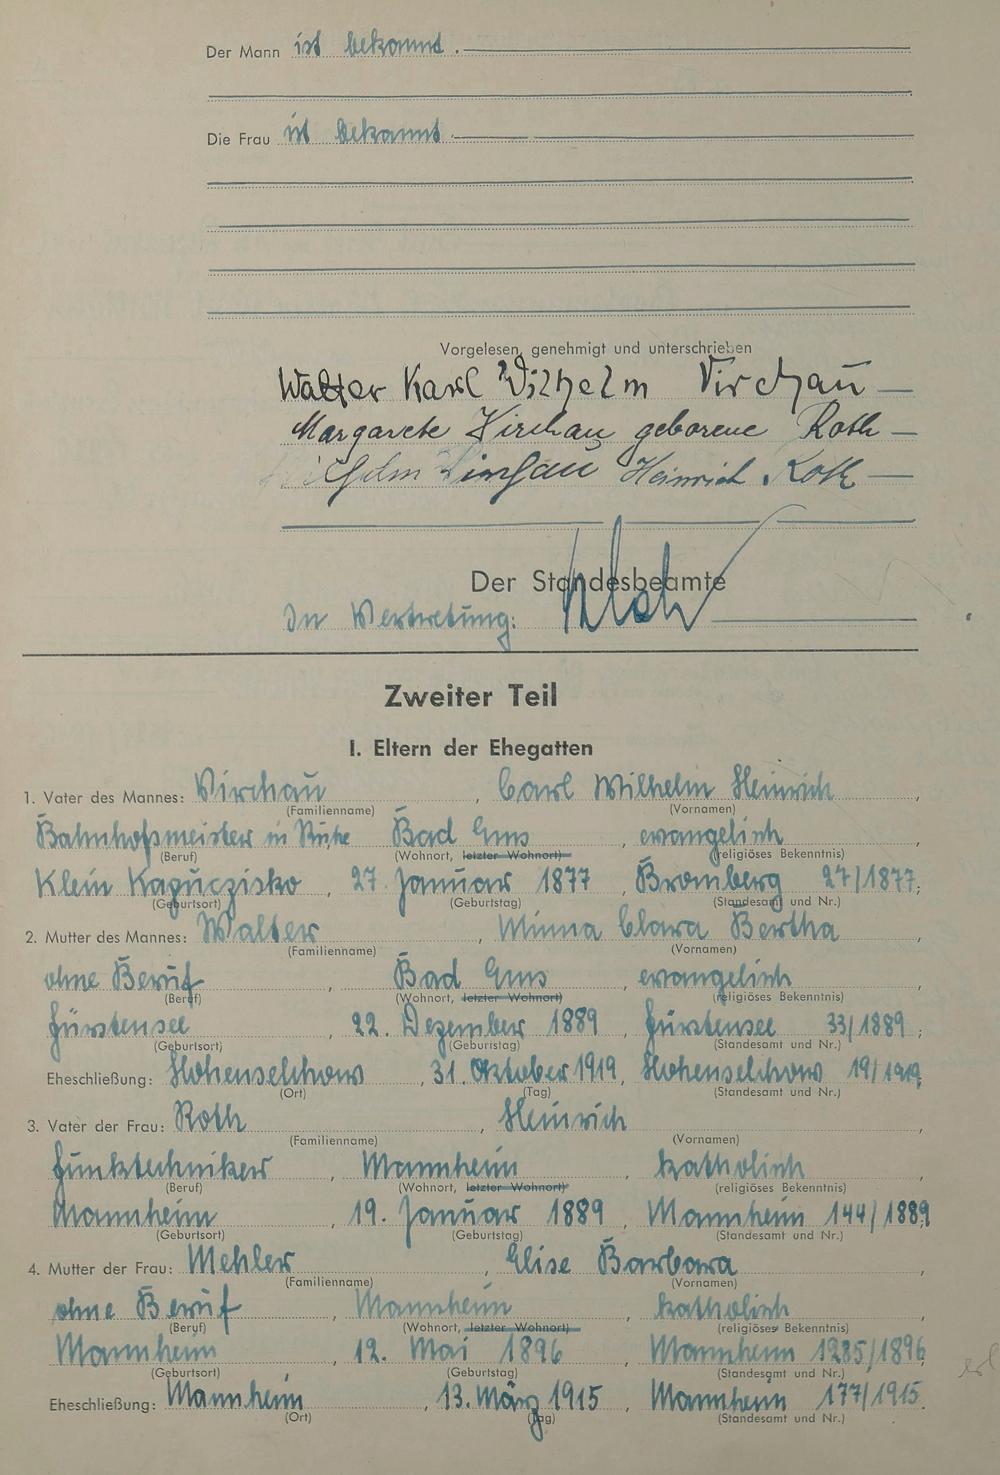 Der Mann ist bekannt.
Die Frau ist bekannt.
Vorgelesen, genehmigt und unterschrieben
Walter Karl Wilhelm Virchau
Margarete Virchau geborene Roth
Wilhelm Virchau Heinrich Roth
Der Standesbeamte
In Vertretung:
Zweiter Teil
I. Eltern der Ehegatten
1. Vater des Mannes: Virchau, Carl Wilhelm Heinrich,
(Familienname) (Vornamen)
Bahnhofsmeister in Ruhe Bad Ems, evangelisch
(Beruf) (Wohnort, letzter Wohnort) (religiöses Bekenntnis)
Klein Kapuczisko, 27. Januar 1877, Bromberg 27/1877;
(Geburtsort) (Geburtstag) (Standesamt und Nr.)
2. Mutter des Mannes: Walter, Minna Clara Bertha,
(Familienname) (Vornamen)
ohne Beruf, Bad Ems, evangelisch
(Beruf) (Wohnort, letzter Wohnort) (religiöses Bekenntnis)
Fürstensee, 22. Dezember 1889, Fürstensee 33/1889;
(Geburtsort) (Geburtstag) (Standesamt und Nr.)
Eheschließung: Hohenselchow, 31. Oktober 1919, Hohenselchow 19/1919;
(Ort) (Tag) (Standesamt und Nr.)
3. Vater der Frau: Roth, Heinrich,
(Familienname) (Vornamen)
Funktechniker, Mannheim, katholisch
(Beruf) (Wohnort, letzter Wohnort) (religiöses Bekenntnis)
Mannheim, 19. Januar 1889, Mannheim 144/1889
(Geburtsort) (Geburtstag) (Standesamt und Nr.)
4. Mutter der Frau: Mehler, Elise Barbara,
(Familienname) (Vornamen)
ohne Beruf, Mannheim, katholisch
(Beruf) (Wohnort, letzter Wohnort) (religiöses Bekenntnis)
Mannheim, 12. Mai 1896, Mannheim 1285/1896
(Geburtsort) (Geburtstag) (Standesamt und Nr.)
Eheschließung: Mannheim, 13. März 1915, Mannheim 177/1915.
(Ort) (Tag) (Standesamt und Nr.)